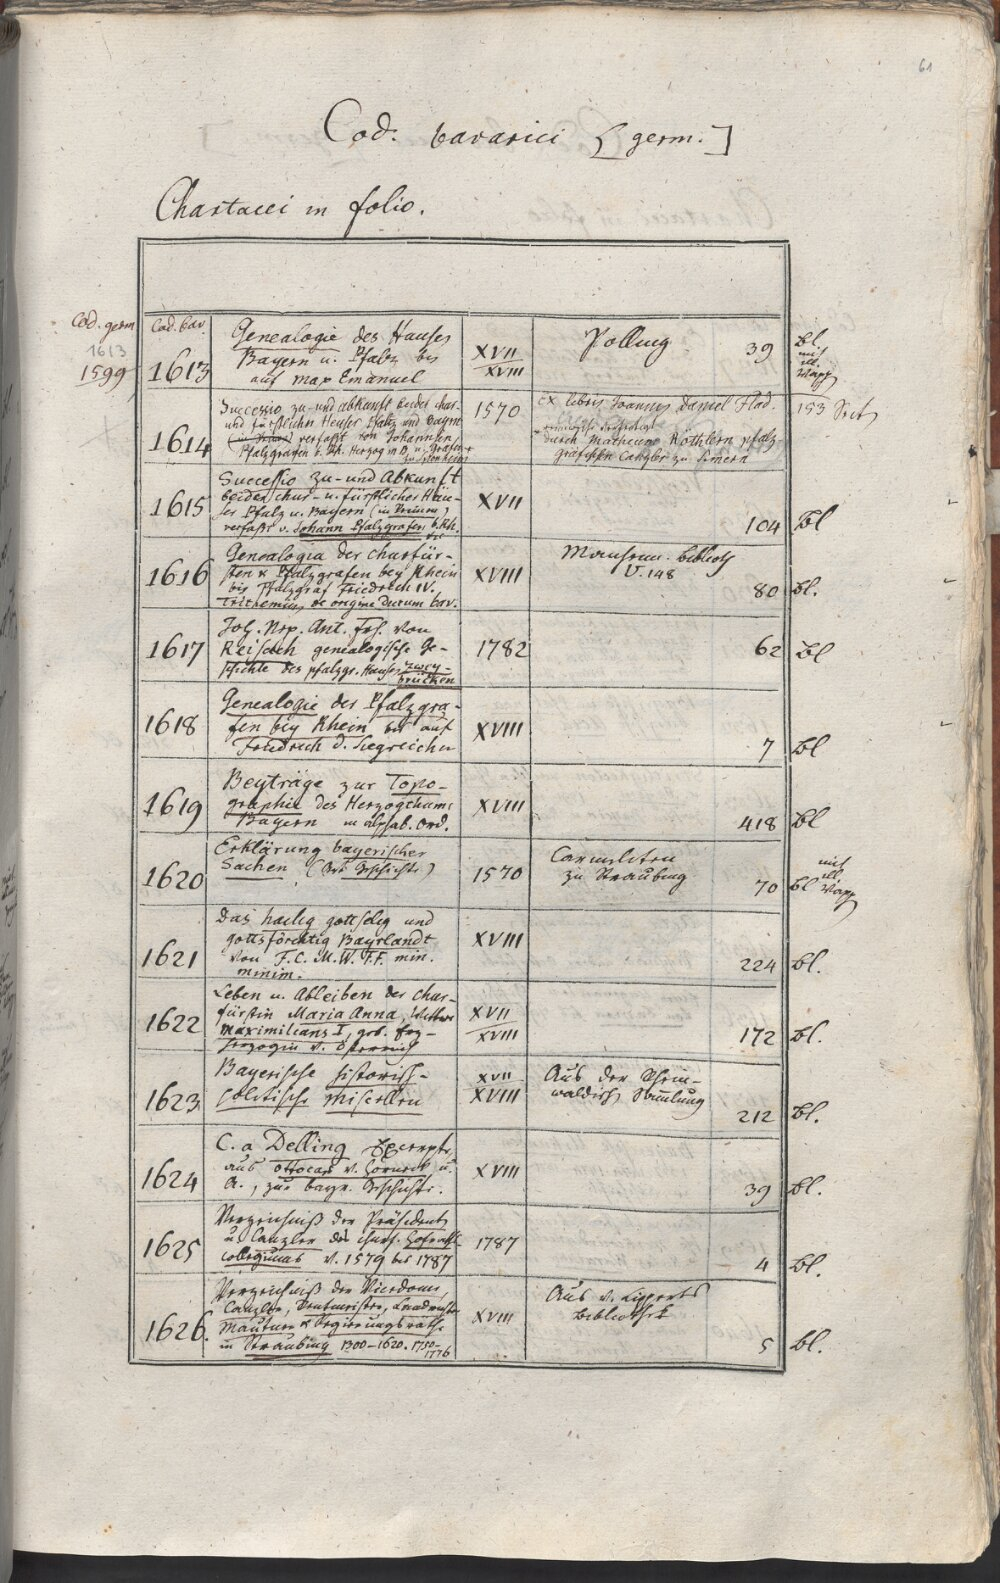 61
Cod. bavarici [germ.]
Chartacei in folio.
Cod. germ
1613
1599
Cod. bav.
1613
Genealogie des Hauses
Bayern u. Pfalz bis
auf Max Emanuel
XVII
XVIII
Polling
39
Bl.
mit
ill.
Wapp
1614
Successio zu- und abkunft beider chur-
und fürstlicher Heuser Pfaltz und Bayrn
verfaßt von Johannsen
Pfalzgrafen b. Rh. Herzog in B. u. Grafen
zu Sponheim
1570
ex libris Joannis Daniel Flad.
durch Matheum Röthlern pfalz-
gräfischen Canzler zu Simern
153 Seit
1615
Successio zu- und Abkunft
beider chur- u. fürstlicher Häu-
ser Pfalz u. Bayern (in Reimen)
verfaßt v. Johann Pfalzgrafen b. Rh.
XVII
104
Bl
1616
Genealogia der churfür-
sten & Pfalzgrafen bey Rhein
bis Pfalzgraf Friedrich IV.
Trithemius de origine Ducum bav.
XVIII
Manhem. Biblioth
V. 148
80
Bl.
1617
Joh. Nep. Ant. Frh. von
Reisach genealogische Ge-
schichte des pfalzgr. Hauses zwey-
brücken
1782
62
Bl
1618
Genealogie der Pfalzgra-
fen bey Rhein bis auf
Friedrich d. Siegreichen
XVIII
7
Bl
1619
Beyträge zur Topo-
graphie des Herzogthums
Bayern in alphab. Ord.
XVIII
418
Bl
1620
Erklärung bayerischer
Sachen
1570
Carmeliten
zu Straubing
70
bl
mit
ill.
Wapp
1621
Das heilig gottselig und
gottsförchtig Bayrlandt
von F. C. M. W. F. F. min.
minim.
XVIII
224
bl.
1622
Leben u. Ableiben der chur-
fürstin Maria Anna, Wittwe
Maximilians I, geb. Erz-
herzogin v. Österreich
XVII
XVIII
172
bl.
1623
Bayerische historisch-
politische Miscellen
XVII
XVIII
Aus der
212
Bl.
1624
C. a Delling Excerpte
aus Ottocar v. Horneck u.
A., zur bayr. Geschichte.
XVIII
39
bl.
1625
Verzeichniß der Präsidenten
u. Canzler des churf. Hofraths
collegiums v. 1579 bis 1787
1787
4
bl.
1626.
Verzeichniß der Vicedome,
Canzler, Rentmeister, Landrichter
Mautner & Regierungsräthe
in Straubing 1300-1620. 1750-
1776
XVIII
Aus v. Lipperts
Bibliothek
5
bl.